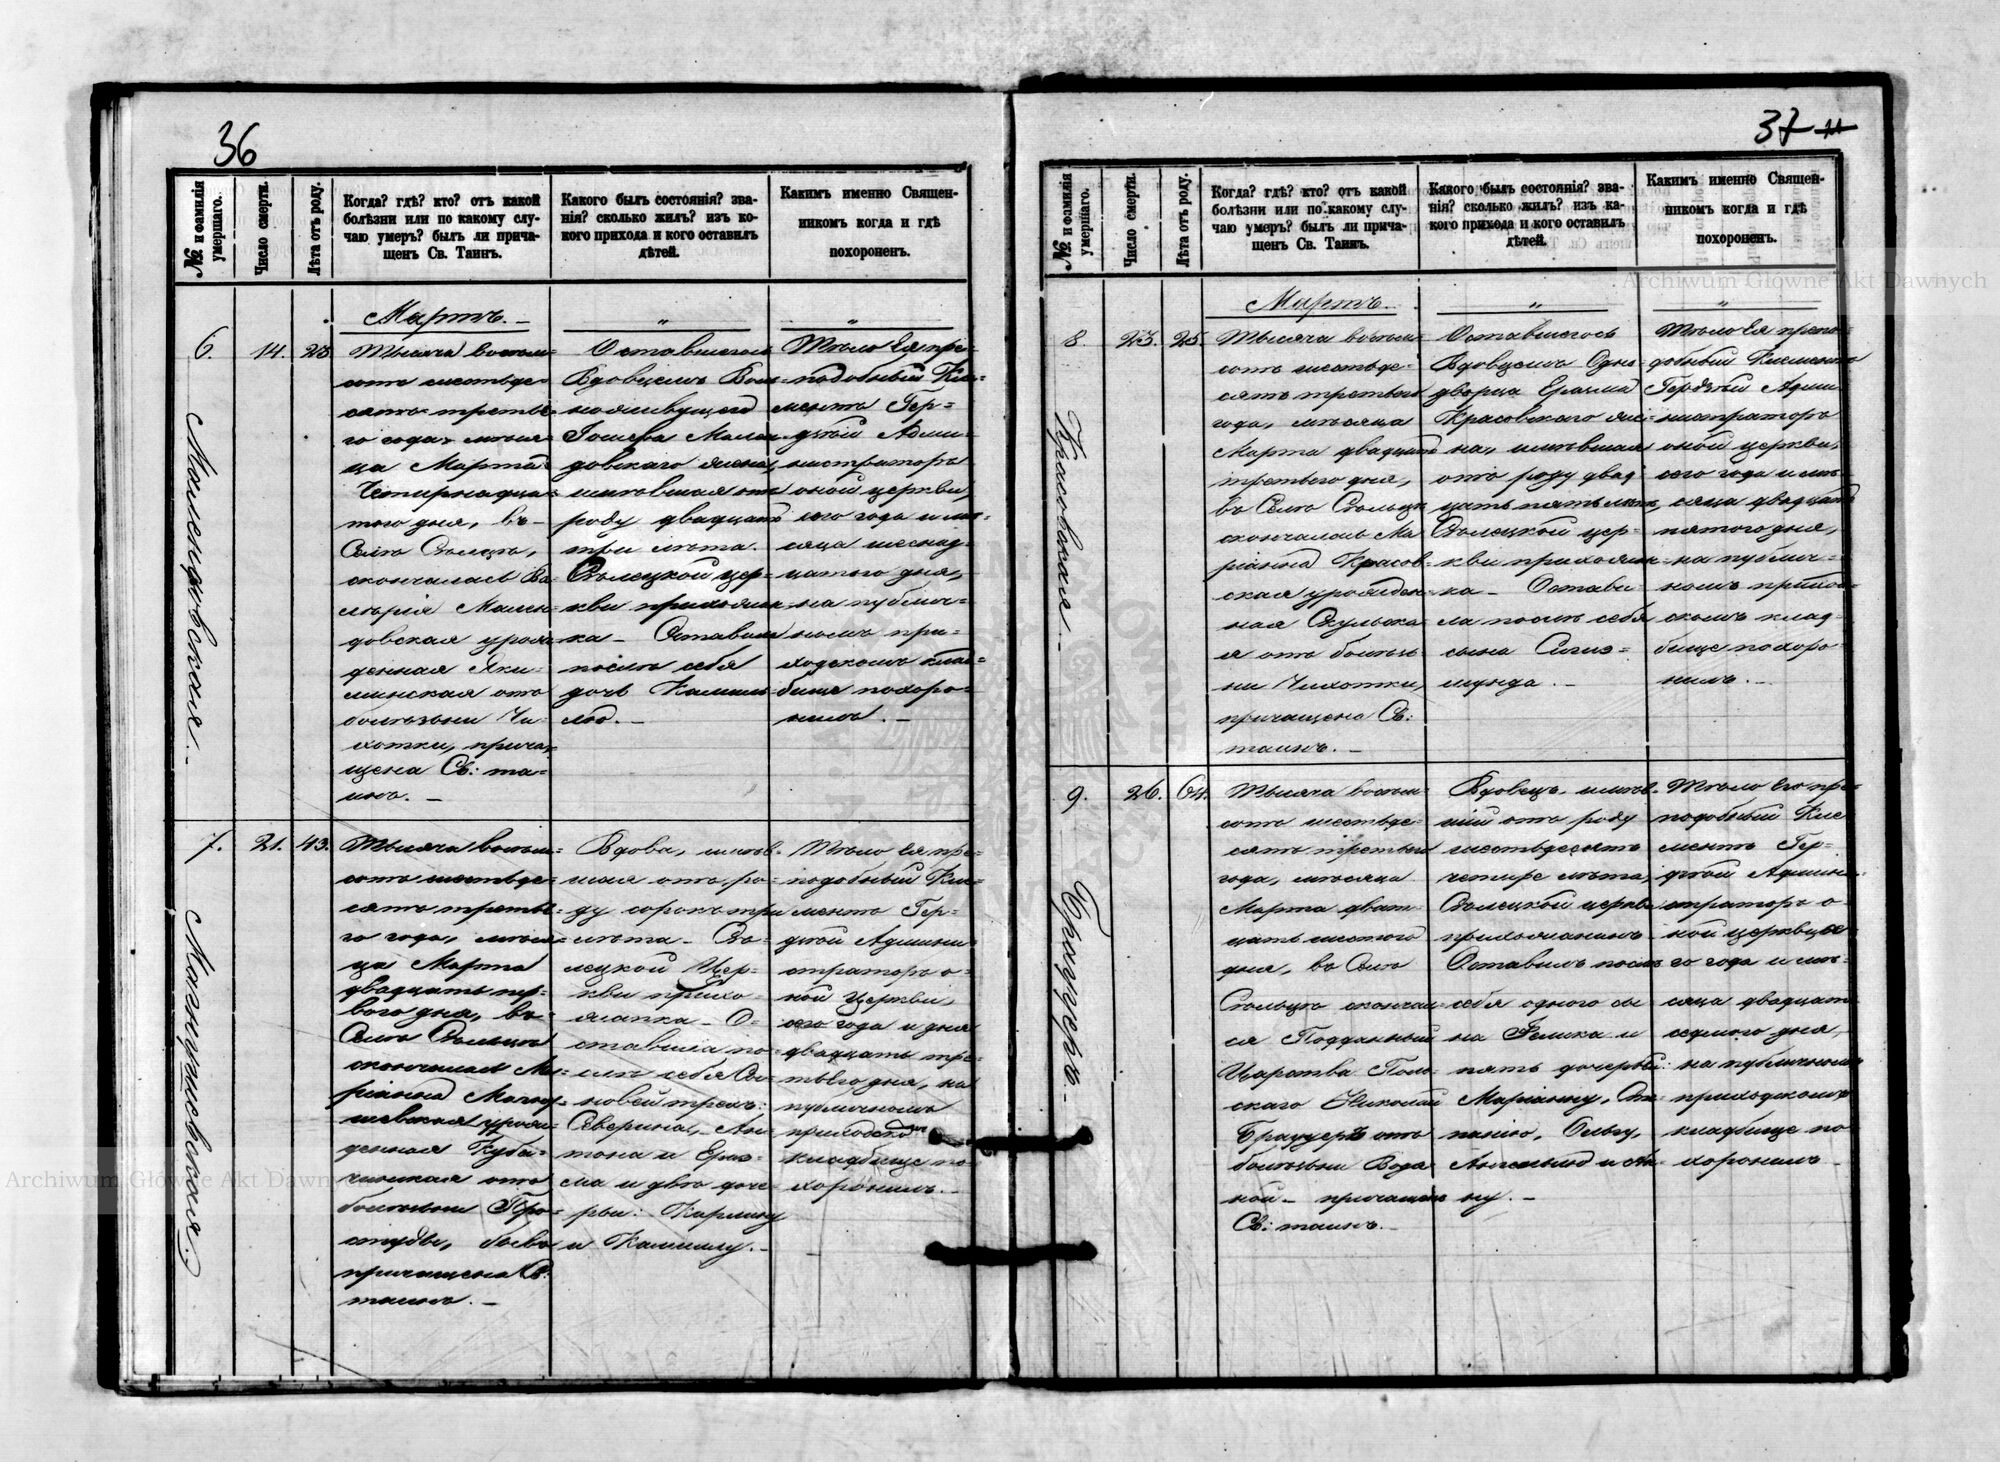 36
№ и фамилія умершаго.
Число смерти.
Лѣта отъ роду.
Когда? гдѣ? кто? отъ какой
болѣзни или по какому слу-
чаю умеръ? былъ ли прича-
щенъ Св. Таинъ.
Какого былъ состоянія? зва-
нія? сколько жилъ? изъ ко-
кого прихода и кого оставилъ
дѣтей.
Каким именно Священ-
никомъ когда и гдѣ
похороненъ.
Мартъ.
6.
14.
23
Тысяча восем-
сотъ шестьде-
сятъ третья-
го года, мѣся-
ца Марта
Четырнадца-
таго дня, въ
Селѣ Стольцѣ,
скончалась Ва-
лерія Мален-
довская урож-
денная Яки-
минская отъ
болѣзни Чи-
хотки, прича-
щена Св: та-
инъ.
Оставшегося
Вдовцемъ Воль-
ноживущего
Іосифа Мален-
довскаго жена,
имѣвшая отъ
роду двадцать
три лѣта.
Столецкой цер-
кви прихожан-
ка – Оставила
послѣ себя
дочь Камил-
лю.
Тѣло Ея пре-
подобный Кли-
ментъ Гер-
дтой Адми-
нистраторъ
оной церкви,
сего года и мѣ-
сяца шеснад-
цатого дня,
на публич-
номъ при-
ходскомъ клад-
бище похоро-
нилъ.
7.
21.
43.
Тысяча восем-
сотъ шестьде-
сятъ третья-
го года, мѣся-
ца Марта
двадцать пер-
вого дня, въ
Селѣ Стольцѣ
скончалась Ма-
ріанна
урож-
денная
отъ
болѣзни Про-
студы, бывъ
причащена Св:
таинъ.
Вдова, имѣв-
шая отъ ро-
ду сорокъ три
лѣта – Сто-
лецкой Цер-
кви прихо-
жанка – О-
ставила по-
слѣ себя Сы-
новей трехъ:
Северина, Ан-
тона и Ераз-
ма и двѣ доче-
ры: Каролину
и Камиллу.
Тѣло Ея пре-
подобный Кли-
ментъ Гер-
дтой Админи-
страторъ о-
ной Церкви,
сего года и дня
двадцать тре-
тьего дня, на
публичномъ
приходском
кладбище по-
хоронилъ.
37
№ и фамилія умершаго.
Число смерти.
Лѣта отъ роду.
Когда? гдѣ? кто? отъ какой
болѣзни или по какому слу-
чаю умеръ? былъ ли прича-
щенъ Св. Таинъ.
Какого былъ состоянія? зва-
нія? сколько жилъ? изъ ка-
кого прихода и кого оставилъ
дѣтей.
Какимъ именно Священ-
никомъ когда и гдѣ
похороненъ.
Мартъ.
8
23.
25.
Красовская
Тысяча восем-
сотъ шестьде-
сятъ третьего
года, мѣсяца
Марта двадцать
третьего дня,
въ Селѣ Стольцѣ
скончалась Ма-
ріанна Красов-
ская урожден-
ная
отъ болѣз-
ни Чихотки,
причащена Св:
таинъ.
Оставшегося
Вдовцемъ Одно-
дворца Еразма
Красовскаго же-
на, имѣвшая
отъ роду двад-
цать пять лѣтъ,
Столецкой цер-
кви прихожан-
ка – Остави-
ла послѣ себя
сына Сигиз-
мунда.
Тѣло Ея препо-
добный Климентъ
Гердтой Адми-
нистраторъ
оной церкви,
сего года и мѣ-
сяца двадцать
пятого дня,
на публич-
номъ приход-
скомъ клад-
бище похоро-
нилъ.
9.
26.
64.
Брауцеръ
Тысяча восем-
сотъ шестьде-
сятъ третьего
года, мѣсяца
Марта двад-
цать шестого
дня, въ Селѣ
Стольцѣ скончал-
ся Подданный
Царства Поль-
скаго Николай
Брауцеръ отъ
болѣзни Водя-
ной – причащенъ
Св: таинъ.
Вдовецъ, имѣв-
шій отъ роду
шестьдесятъ
четыре лѣта,
Столецкой церкви
прихожанинъ
Оставилъ послѣ
себя одного сы-
на Феликса и
пять дочерей:
Маріанну, Сте-
панію, Ольгу,
Ангелію и Ан-
ну.
Тѣло Его пре-
подобный Кли-
ментъ Гер-
дтой Админи-
страторъ о-
ной церкви, се-
го года и мѣ-
сяца двадцать
седмого дня,
на публичномъ
приходскомъ
кладбище по-
хоронилъ
Archiwum Główne Akt Dawnych
Archiwum Główne Akt Dawnych